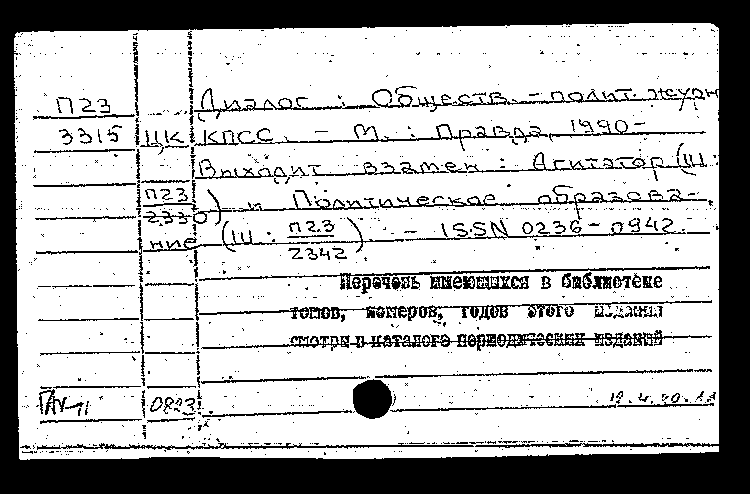 П23 Диалог : Обществ. - полит. журн
3315 ЦК КПСС. - М. : Правда, 1990-
Выходит взамен : Агитатор (Ш :
П23
2330) и Политическое образова-
ние (Ш : П23
2342) - ISSN 0236-0942.
Перечень имеющихся в библиотеке
томов, номеров, годов этого издания
смотри в каталоге периодических изданий
0823